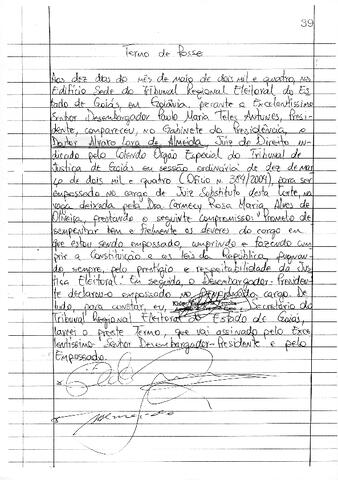 39
Termo de Posse
Aos dez dias do mês de maio de dois mil e quatro, no
Edifício Sede do Tribunal Regional Eleitoral do Es-
tado de Goiás, em Goiânia, perante o Excelentíssimo
Senhor Desembargador Paulo Maria Teles Antunes, Presi-
dente, compareceu, no Gabinete da Presidência, o
Doutor Alvaro Lara de Almeida, Juiz de Direito in-
dicado pelo Colendo Órgão Especial do Tribunal de
Justiça de Goiás em sessão ordinária de dez de mar-
ço de dois mil e quatro (Ofício n. 369/2004), para ser
empossado no cargo de Juiz Substituto desta Corte, na
vaga deixada pela Dra Carmecy Rosa Maria Alves de
Oliveira, prestando o seguinte compromisso: "Prometo de-
sempenhar bem e fielmente os deveres do cargo em
que estou sendo empossado, cumprindo e fazendo cum-
prir a Constituição e as leis da República, pugnan-
do, sempre, pelo prestígio e respeitabilidade da Jus-
tiça Eleitoral." Em seguida, o Desembargador-Presiden-
te declarou-o empossado no cargo. De
tudo, para constar, eu, Secretário do
Tribunal Regional Eleitoral do Estado de Goiás,
lavrei o preste Termo, que vai assinado pelo Exce-
lentíssimo Senhor Desembargador-Presidente e pelo
Empossado.